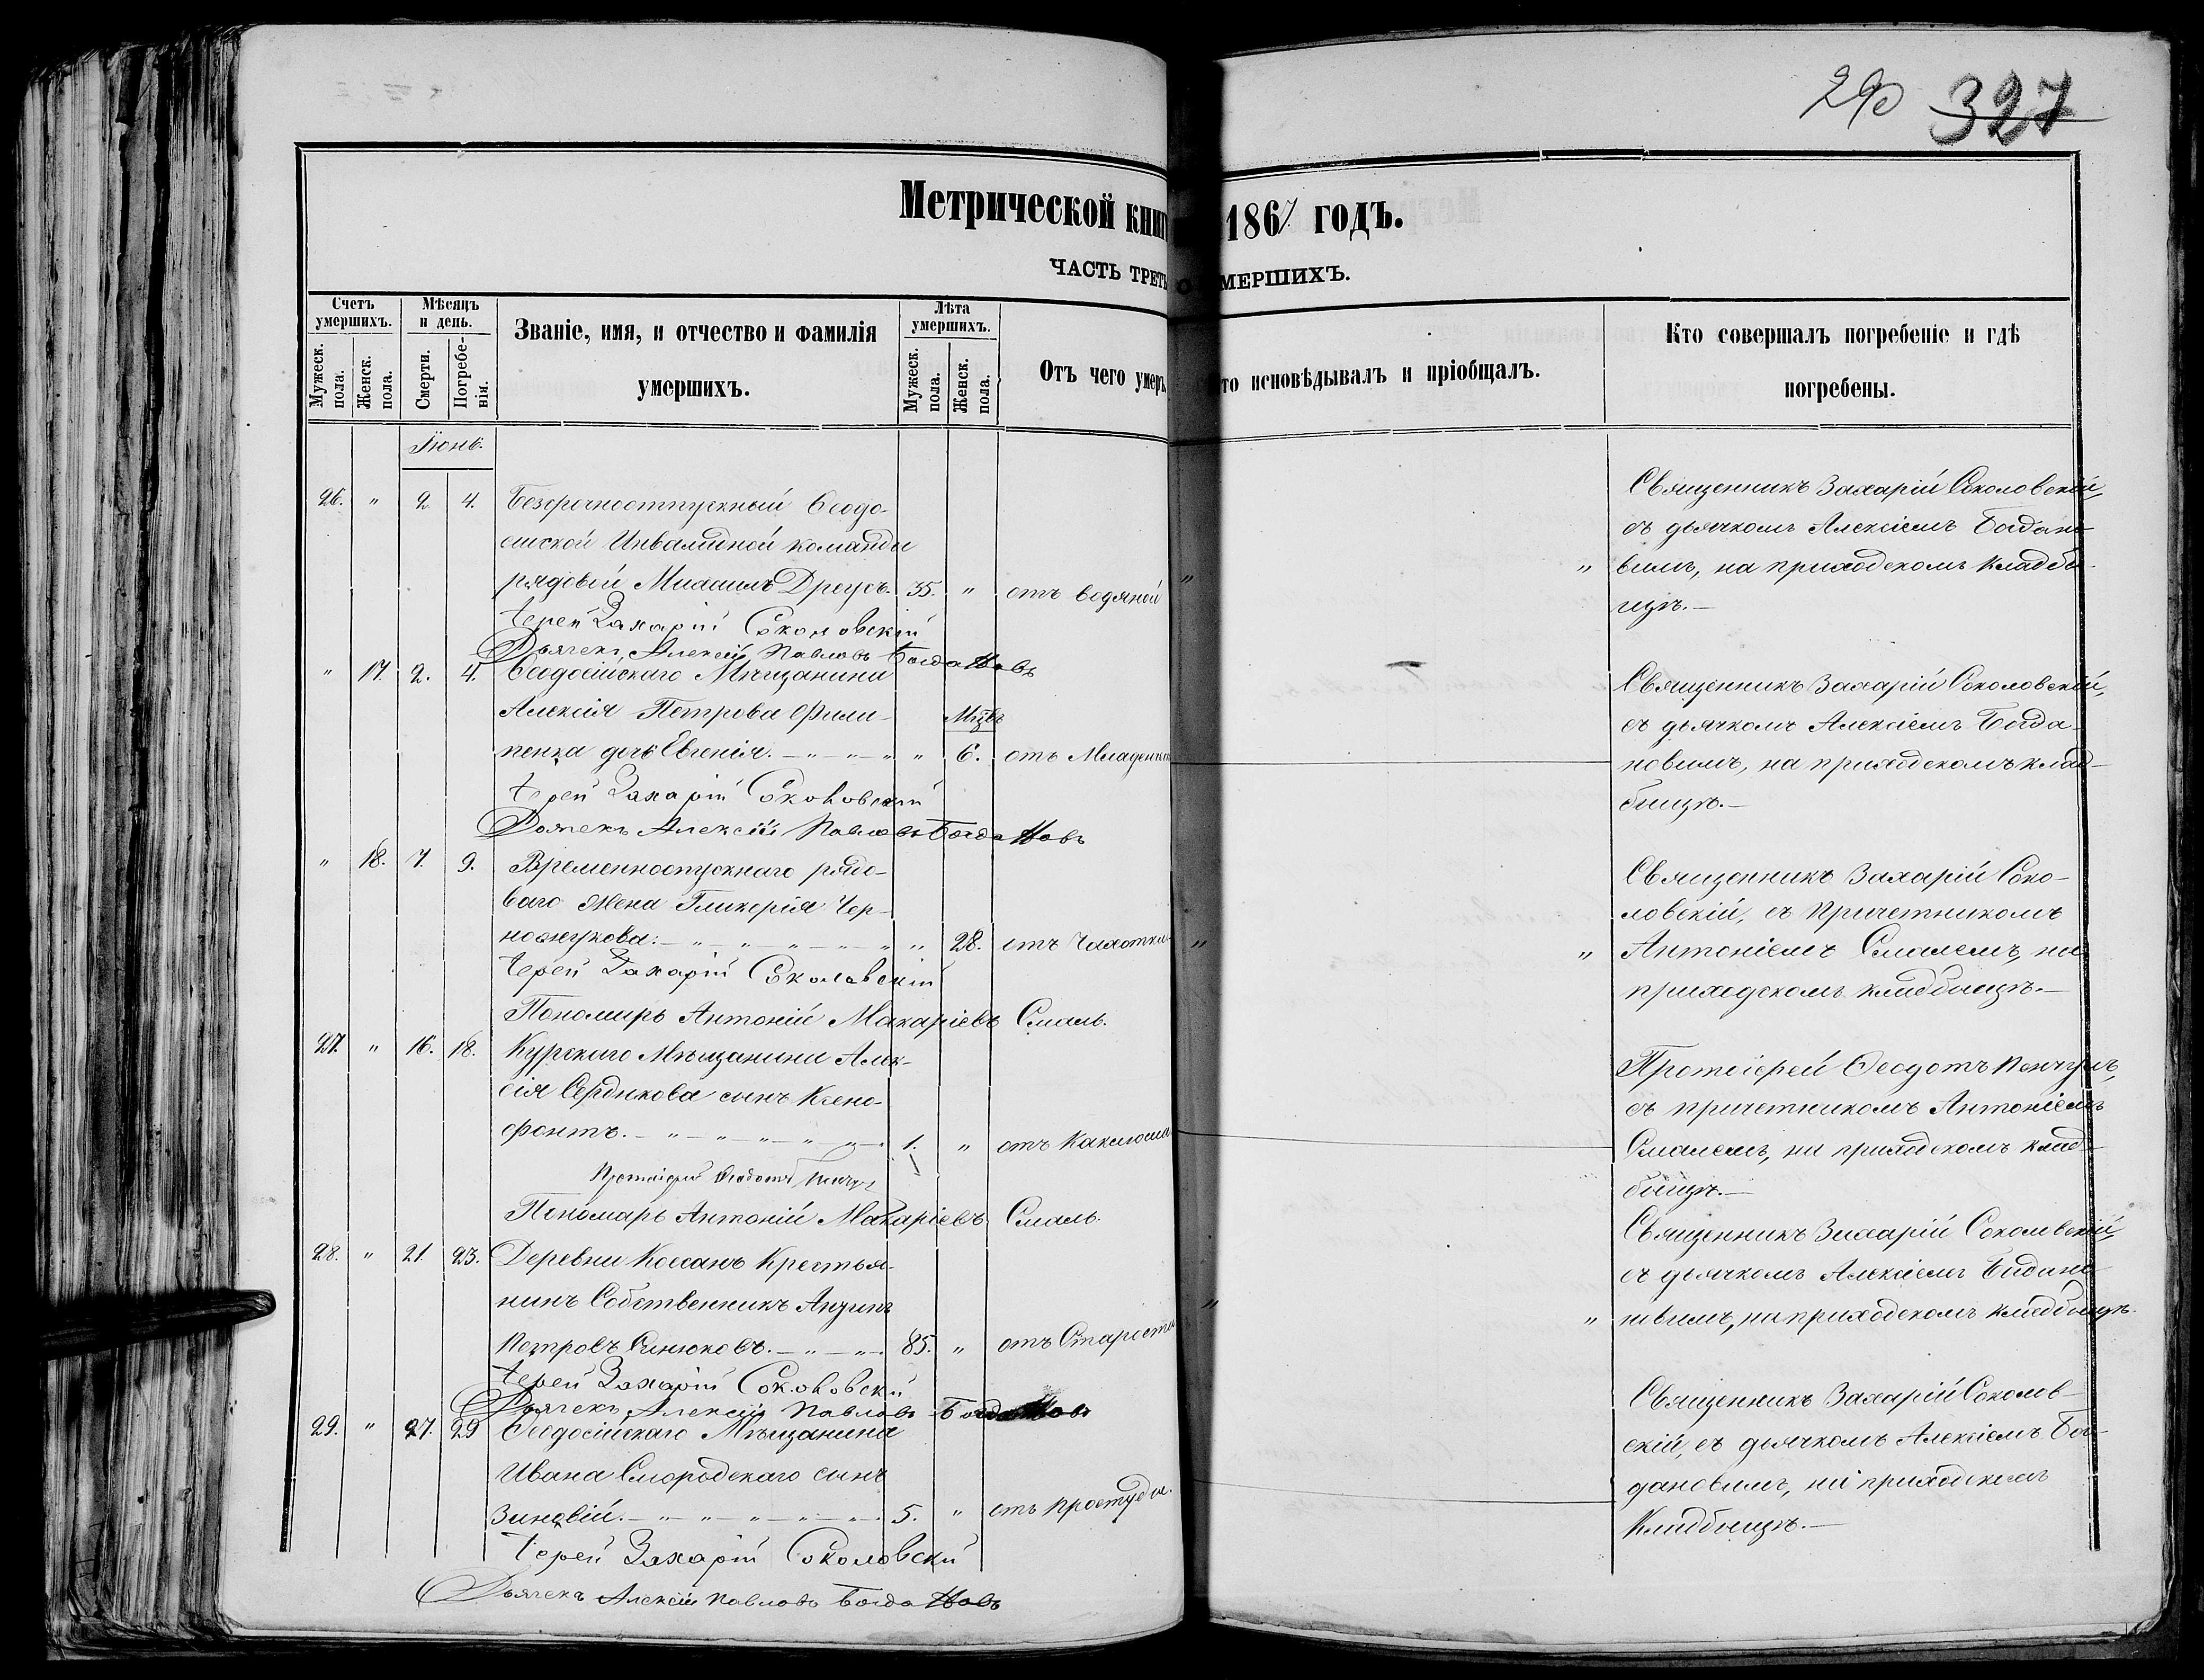 290 327
Метрической книг 1867 годъ.
ЧАСТЬ ТРЕТЬ О МЕРШИХЪ.
Счетъ умершихъ.
Мужеск. пола.
Женск. пола.
Мѣсяцъ и день.
Смерти.
Погребенія.
Званіе, имя, и отчество и фамилія
умершихъ.
Лѣта умершихъ.
Мужеск. пола.
Женск. пола.
Отъ чего умеръ
то исповѣдывалъ и пріобщалъ.
Кто совершалъ погребеніе и гдѣ
погребены.
Іюнь.
26. " 2 4. Безсрочноотпускный Ѳеодо-
сійской Инвалидной команды
рядовый Михаилъ Дреусъ. 35. " отъ водяной " "
Іерей Захарій Соколовскій
Дьячекъ Алексѣй Павловъ Богдановъ
Священникъ Захарій Соколовскій,
съ дьячкомъ Алексіемъ Богдано-
вымъ, на приходскомъ кладби-
щѣ.—
" 17. 2. 4. Ѳеодосійскаго Мѣщанина
Алексія Петрова Фили- Мцъ
пенка дочь Евгенія. " 6. отъ Младенч
Іерей Захарій Соколовскій
Дьячекъ Алексій Павловъ Богдановъ
Священникъ Захарій Соколовскій,
съ дьячкомъ Алексіемъ Богда-
новымъ, на приходскомъ клад-
бищѣ.—
" 18. 7. 9. Временноотпускнаго рядо-
ваго жена Гликерія Чер-
ножукова. " 28. отъ Чахотки " "
Іерей Захарій Соколовскій
Пономарь Антоній Макаріевъ Смаль.
Священникъ Захарій Соко-
ловскій, съ Причетникомъ
Антоніемъ Смалемъ, на
приходскомъ кладбищѣ.—
27. " 16. 18. Курскаго Мѣщанина Алек-
сія Сердюкова сынъ Ксено-
фонтъ. 1. " отъ Каклюша
Протоіерей Ѳеодотъ
Пономарь Антоній Макаріевъ Смаль.
Протоіерей Ѳеодотъ
съ причетникомъ Антоніемъ
Смалемъ, на приходскомъ клад-
бищѣ.—
28. " 21. 23. Деревни Крестья-
нинъ Собственникъ
Петровъ Синюковъ. 85. " отъ Старости " "
Іерей Захарій Соколовскій
Дьячекъ Алексій Павловъ Богдановъ
Священникъ Захарій Соколовскій,
съ дьячкомъ Алексіемъ Богдано-
новымъ, на приходскомъ кладбищѣ.
29. " 27. 29 Ѳеодосійскаго Мѣщанина
Ивана Смородскаго сынъ
Зиновій. 5. " отъ простуды.
Іерей Захарій Соколовскій
Дьячекъ Алексій Павловъ Богдановъ
Священникъ Захарій Соколов-
скій, съ дьячкомъ Алексіемъ Бог-
дановымъ, на приходскомъ
Кладбищѣ.—